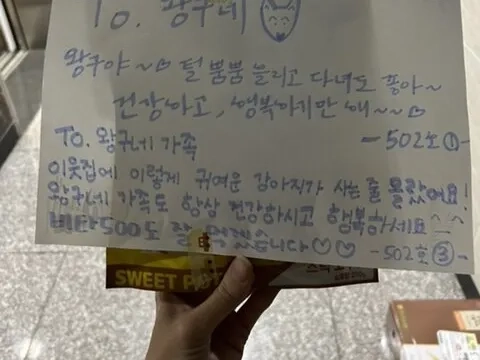 To. 왕구네
왕구야~♡ 털 뿜뿜 늘리고 다녀도 좋아~
건강하고, 행복하기만 해~~♡
-502호①-
TO. 왕구네 가족
이웃집에 이렇게 귀여운 강아지가 사는 줄 몰랐어요!
왕구네 가족도 항상 건강하시고 행복하세요^_^
비타500도 잘 먹겠습니다♡♡ -502호③-
SWEET